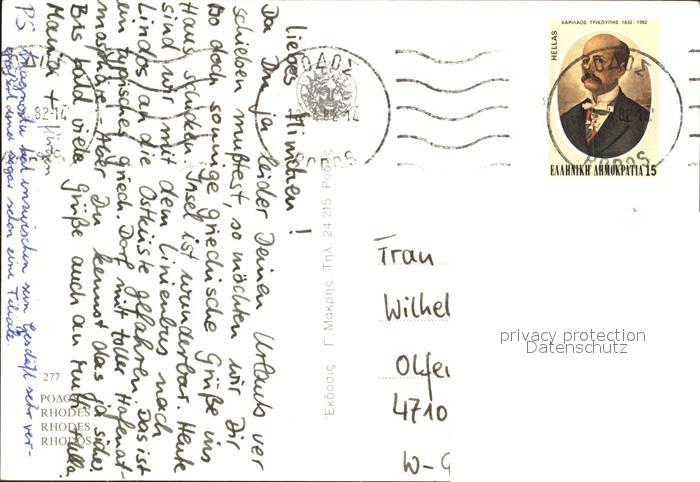 Liebes Hindchen!
Da Du ja leider Deinen Urlaub ver
schieben mußtest, so möchten wir Dir
so doch sonnige griechische Grüße ins
Haus schicken. Insel ist wunderbar. Heute
sind wir mit dem Linienbus nach
Lindos an die Ostküste gefahren. Das ist
ein typisches griech. Dorf mit toller Hafenat-
mosphäre. Aber Du kennst das ja sicher.
Bis bald viele Grüße auch an
Maria + Jürgen
PS. hat inzwischen sein Geschäft sehr ver-
größert und sogar schon eine Filiale.
277
ΡΟΔΟΣ
RHODES
RHODES
RHODOS
Ἔκδοσις Γ. Μακρης Τηλ. 24 215 Ρόδος
ΡΟΔΟΣ
82-14
RODOS
ΧΑΡΙΛΑΟΣ ΤΡΙΚΟΥΠΗΣ 1832-1982
HELLAS
ΕΛΛΗΝΙΚΗ ΔΗΜΟΚΡΑΤΙΑ 15
ΡΟΔΟΣ
82-14
RODOS
Frau
Wilhel
Olfe
4710
W-
privacy protection
Datenschutz